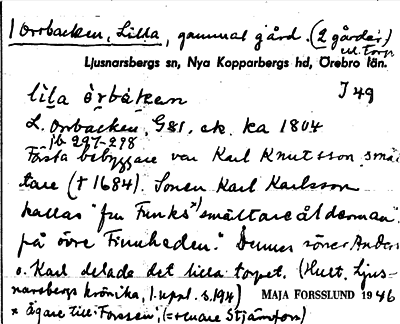 1 Orrbacken, Lilla, gammal gård. (2 gårder)
Ljusnarsbergs sn, Nya Kopparbergs hd, Örebro län.
lila örbäken I 49
L. Orrbacken, G81, ek. ka 1804
jb 297-298
Första bebyggare var Karl Knutsson smäl
tare († 1684). Sonen Karl Karlsson
kallas "fru Funks x) smältareålderman"
på övre Finnheden." Dennes söner Anders
o. Karl delade det lilla torpet. (Hult. Ljus-
narsbergs krönika, 1. uppl. s. 194) MAJA FORSSLUND 1946
x ägare till "Forssen",